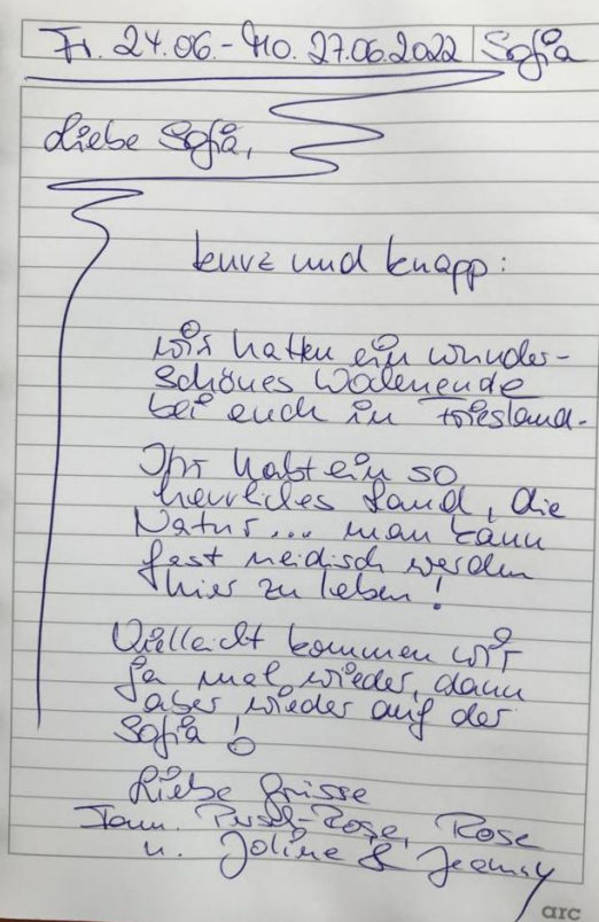 Fr. 24.06.-Mo. 27.06.2022 Sofia
Liebe Sofia,
kurz und knapp:
wir hatten ein wunder-
schönes Wochenende
bei euch in Friesland.
Ihr habt ein so
herrliches Land, die
Natur... man kann
fast neidisch werden
hier zu leben!
Vielleicht kommen wir
ja mal wieder, dann
aber wieder auf der
Sofia!
Liebe Grüsse
Fam. Rose
u. Joline &
arc